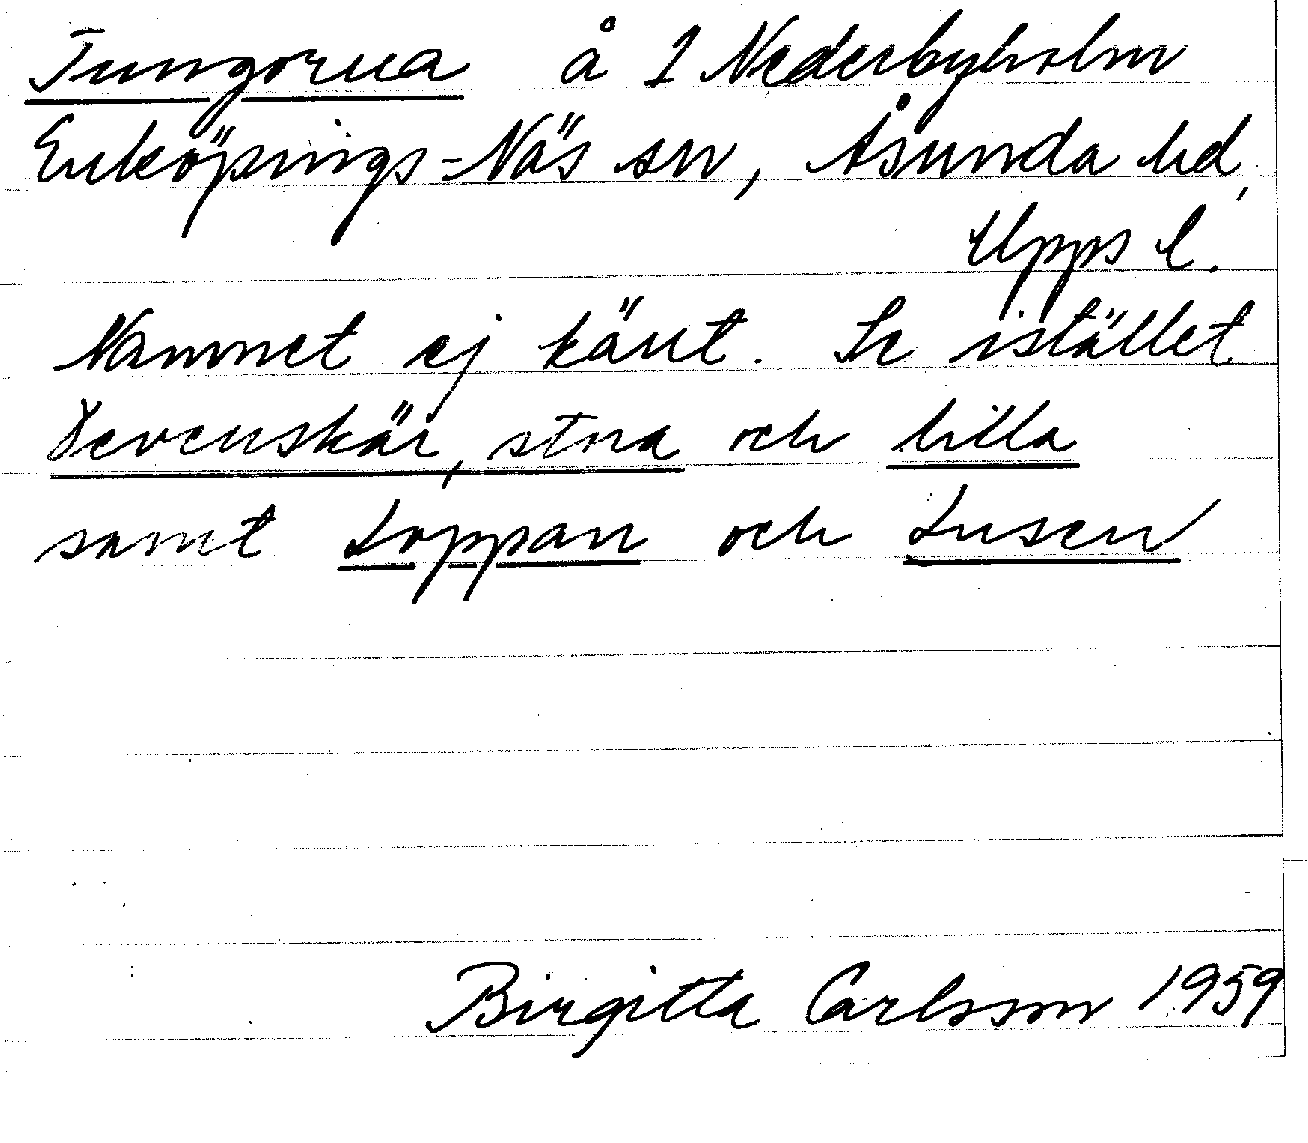 Tungorna å 1 Nederbyholm
Enköpings-Näs sn, Åsunda hd,
Upps l.
Namnet ej känt. Se istället
Xevenskär, stora och lilla
samt Loppan och Lusen
Birgitta Carlsson 1959